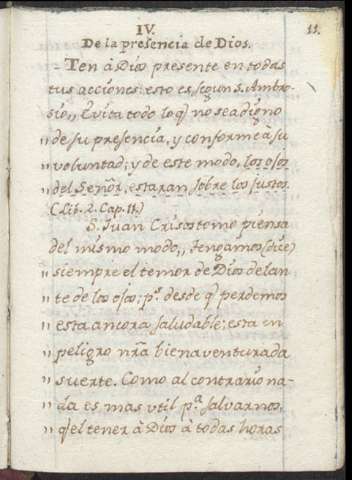 IV. 11.
De la presencia de Dios.
Ten à Dios presente en todas
tus acciones: esto es, segun S. Ambro-
sio,, Evita todo lo q̃ no sea digno
,, de su presencia, y conforme à su
,, voluntad; y de este modo, los ojos
,, del Señor, estaran sobre los justos.
(Lib. 2. Cap. 11.)
S. Juan Crisostomo piensa
del mismo modo,, tengamos (dice)
,, siempre el temor de Dios delan
,, te de los ojos; p.s desde q̃ perdemos
,, esta ancora saludable; esta en
,, peligro nr̃a bienaventurada
,, suerte. Como al contrario na-
,, da es mas util p.a salvarnos,
,, q̃ el tener à Dios à todas horas